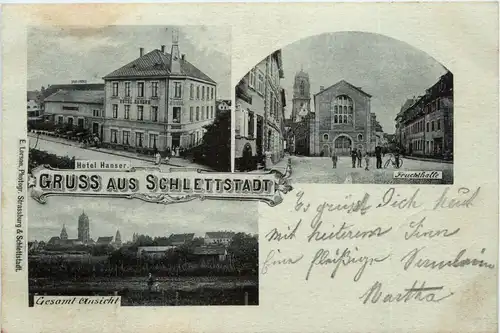 Hotel Hanser.
Fruchthalle
GRUSS AUS SCHLETTSTADT
Gesamt Ansicht
E. Lorson, Photogr. Strassburg & Schlettstadt.
Es grüsst Dich heut
mit heiterem
Eine fleißige
Martha